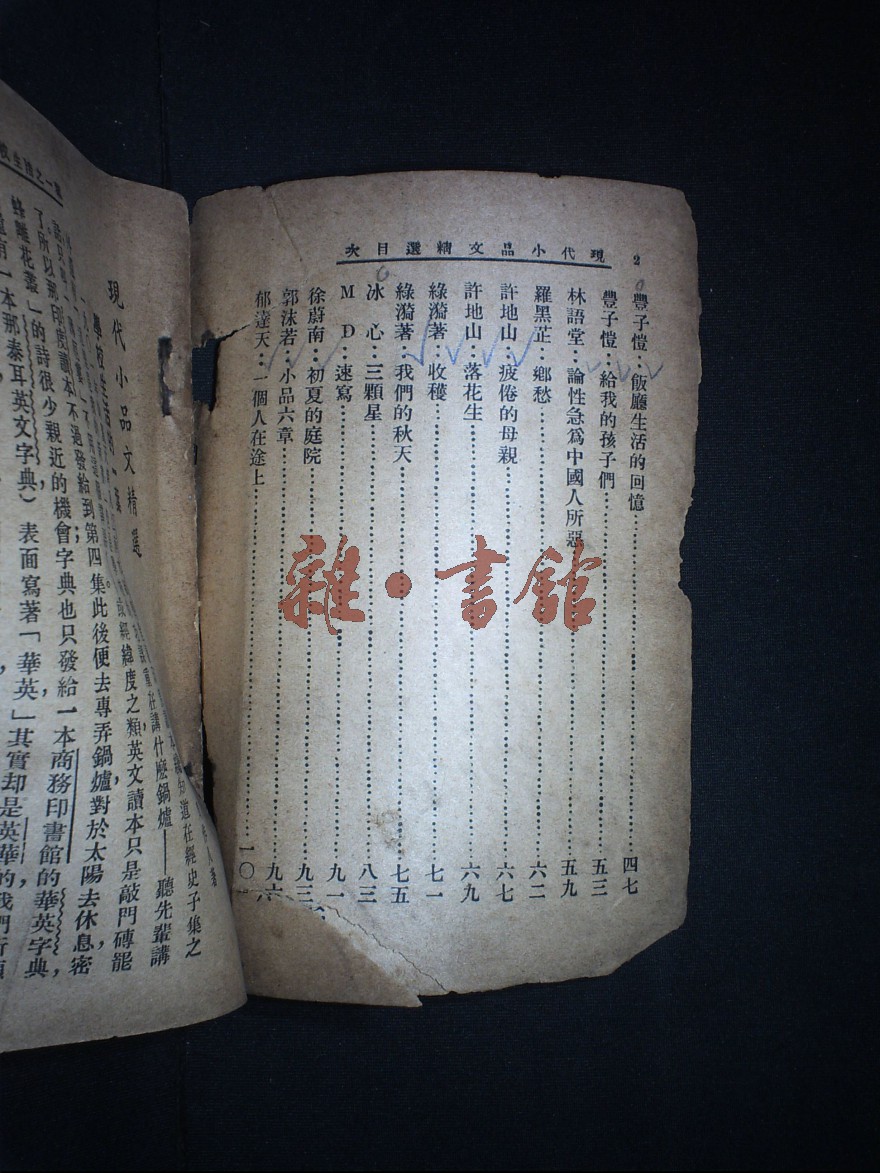 2
現代小品文精選目次
豐子愷：飯廳生活的回憶……四七
豐子愷：給我的孩子們……五三
林語堂：論性急爲中國人所惡……五九
羅黑芷：鄉愁……六二
許地山：疲倦的母親……六七
許地山：落花生……六九
綠漪著：收穫……七一
綠漪著：我們的秋天……七五
冰　心：三顆星……八三
M　D：速寫……九一
徐蔚南：初夏的庭院……九三
郭沫若：小品六章……九六
郁達夫：一個人在途上……一〇
現代小品文精選
道在經史子集之
重在講什麽鍋爐——聽先輩講
經緯度之類英文讀本只是敲門磚罷
了所以那印度讀本不過發給到第四集此後便去專弄鍋爐，對於太陽去休息密
蜂雕花叢」的詩很少親近的機會字典也只發給一本商務印書館的華英字典，
有一本那泰耳英文字典）表面寫著「華英」其實却是英華的我們所
雜·書館